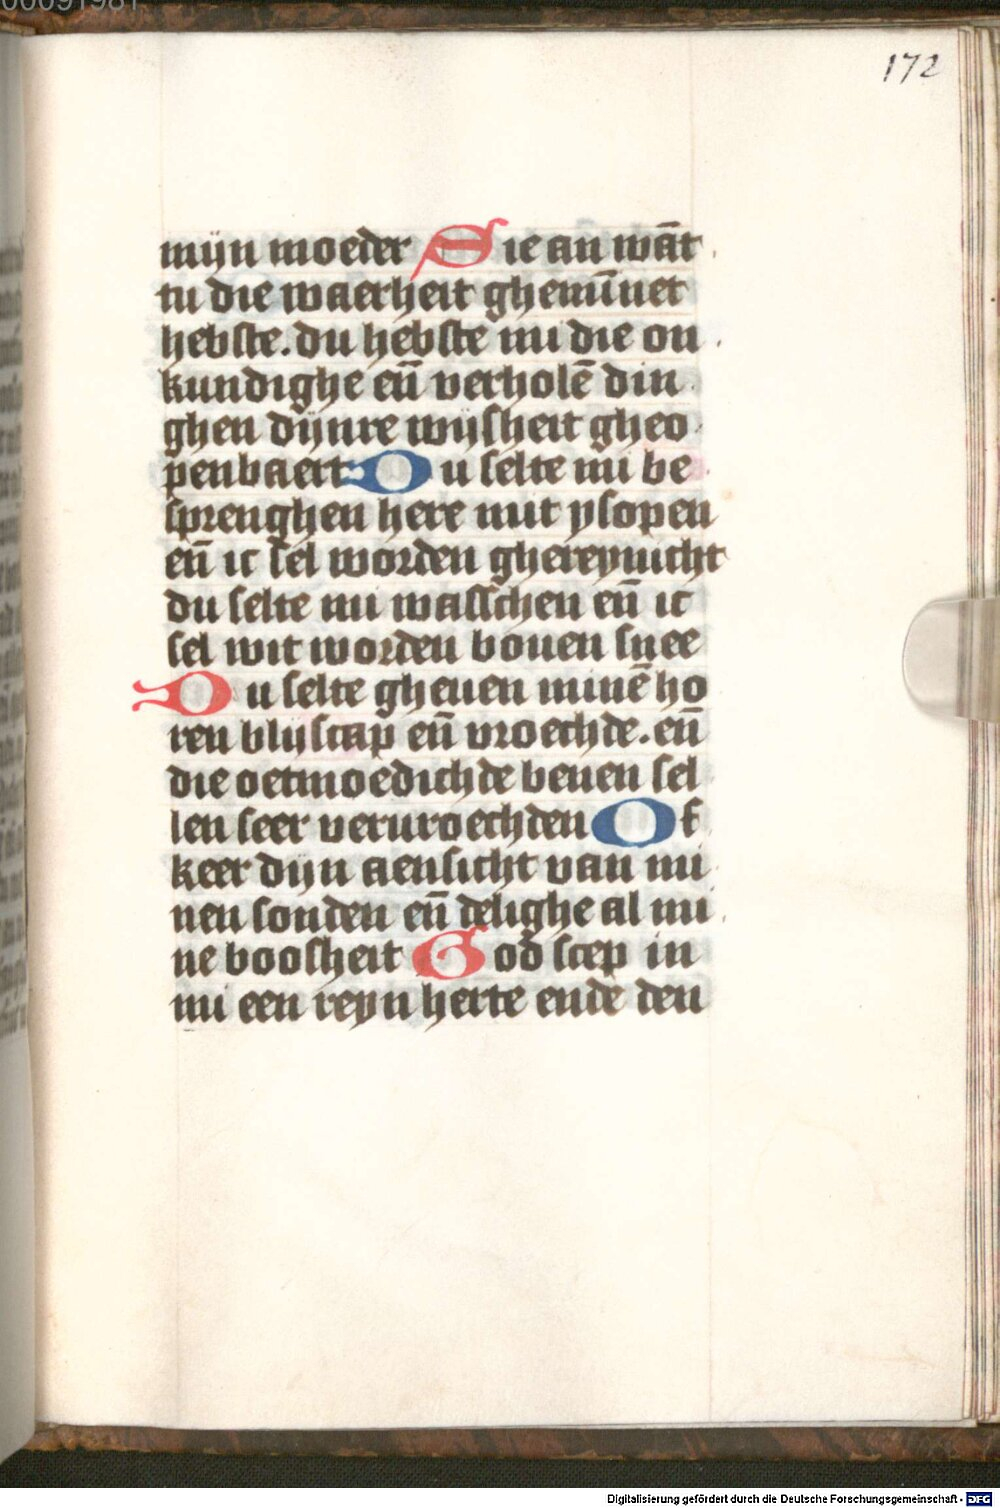 172
mijn moeder Sie an wāt
tu die waerheit gheminnet
hebste. du hebste mi die on
kundighe eñ verholē din
ghen dijnre wijsheit gheo
penbaert Du selte mi be
sprenghen here mit ysopen
eñ ic sel worden ghereynicht
du selte mi wasschen eñ ic
sel wit worden bouen snee
Du selte gheuen minē ho
ren blijscap eñ vroechde. eñ
die oetmoedichde benen sel
len seer veruroechden Of
keer dijn aensicht van mi
nen sonden eñ delighe al mi
ne boosheit God scep in
mi een reyn herte ende den
Digitalisierung gefördert durch die Deutsche Forschungsgemeinschaft - DFG